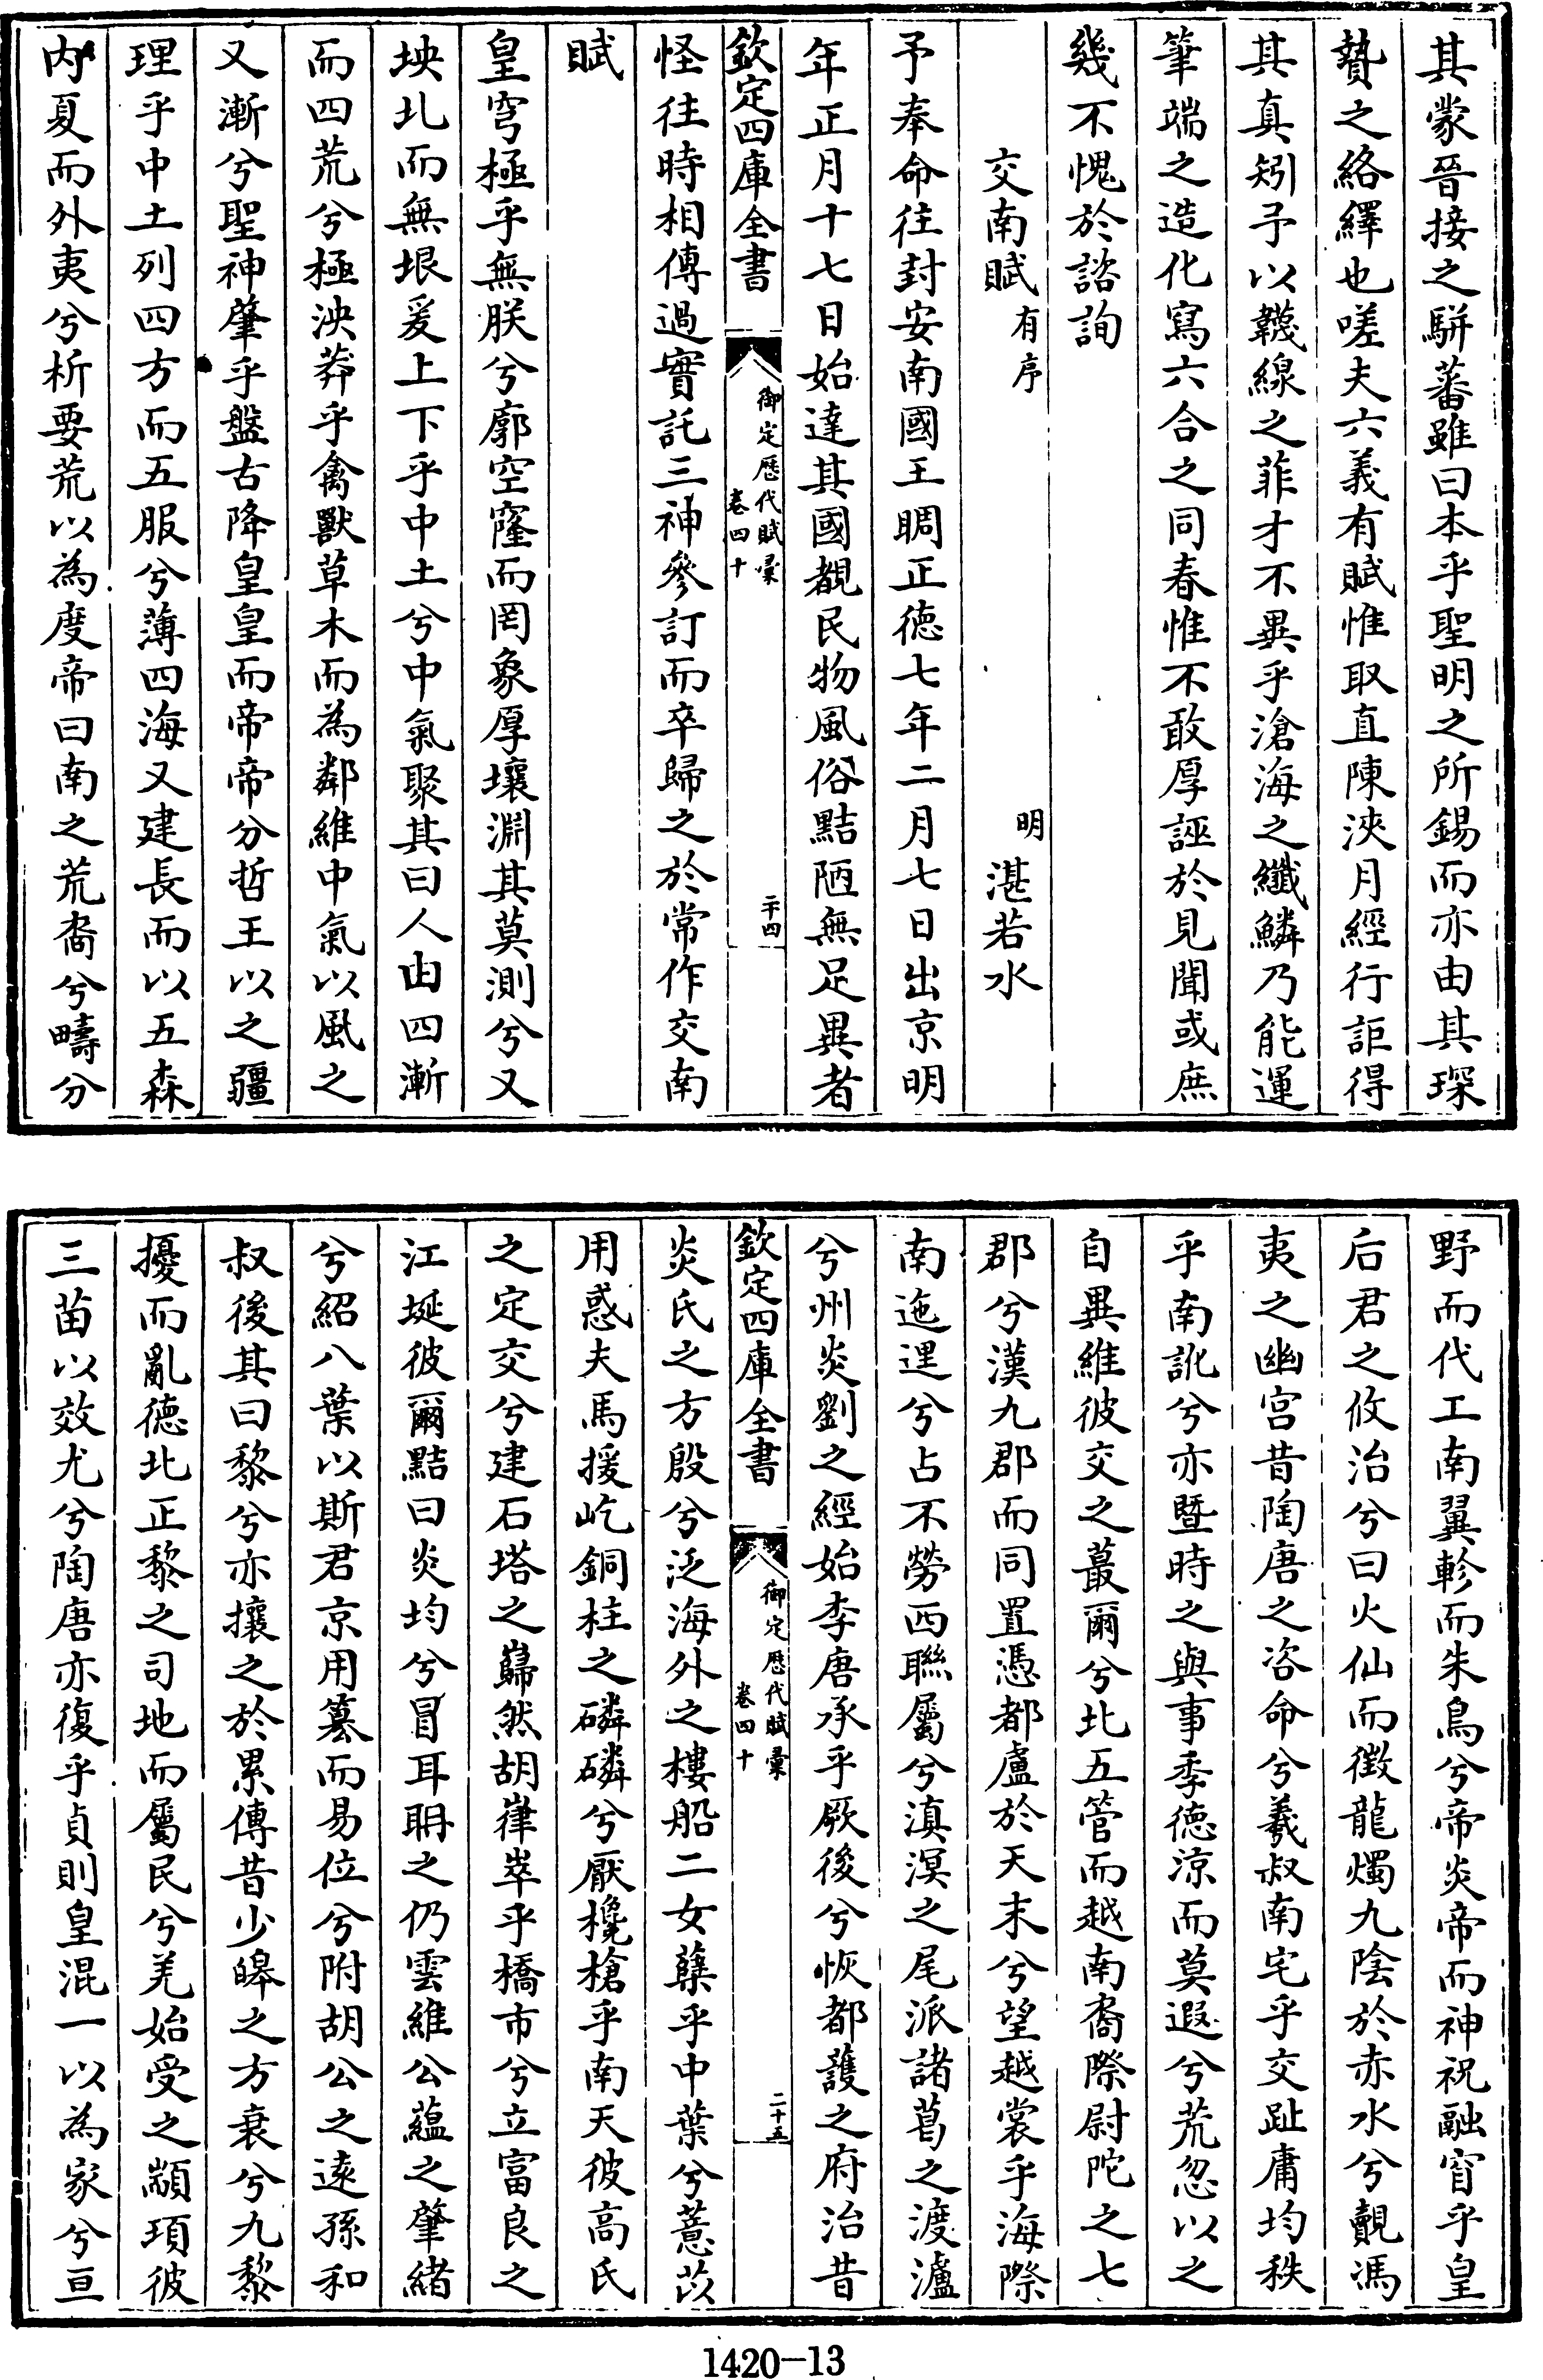 其蒙晉接之駢蕃雖曰本乎聖明之所錫而亦由其琛
贄之絡繹也嗟夫六義有賦惟取直陳浹月經行詎得
其真矧予以韈線之菲才不異乎滄海之纖鱗乃能運
筆端之造化寫六合之同春惟不敢厚誣於見聞或庶
幾不愧於諮詢
交南賦有序 明 湛若水
予奉命往封安南國王睭正徳七年二月七日出京明
年正月十七日始達其國覩民物風俗黠陋無足異者
欽定四庫全書 御定歴代賦彙 卷四十 二十四
怪往時相傳過實託三神參訂而卒歸之於常作交南
賦
皇穹極乎無朕兮廓空窿而罔象厚壤淵其莫測兮又
坱圠而無垠爰上下乎中土兮中氣聚其曰人由四漸
而四荒兮極泱莽乎禽獸草木而為鄰維中氣以風之
又漸兮聖神肇乎盤古降皇皇而帝帝分哲王以之疆
理乎中土列四方而五服兮薄四海又建長而以五森
内夏而外夷兮析要荒以為度帝曰南之荒裔兮疇分
野而代工南翼軫而朱鳥兮帝炎帝而神祝融窅乎皇
后君之攸治兮曰火仙而徴龍燭九陰於赤水兮覿馮
夷之幽宫昔陶唐之咨命兮羲叔南宅乎交趾庸均秩
乎南訛兮亦暨時之與事季徳涼而莫遐兮荒忽以之
自異維彼交之蕞爾兮北五管而越南裔際尉陀之七
郡兮漢九郡而同置憑都盧於天末兮望越裳乎海際
南迤逕兮占不勞西聯屬兮滇溟之尾派諸葛之渡瀘
兮州炎劉之經始李唐承乎厥後兮恢都護之府治昔
欽定四庫全書 御定歴代賦彙 卷四十 二十五
炎氏之方殷兮泛海外之樓船二女蘖乎中葉兮薏苡
用惑夫馬援屹銅柱之磷磷兮厭欃槍乎南天彼高氏
之定交兮建石塔之巋然胡嵂崒乎橋市兮立富良之
江埏彼爾黠曰炎均兮冒耳聃之仍雲維公藴之肇緒
兮紹八葉以斯君京用簒而易位兮附胡公之逺孫和
叔後其曰黎兮亦攘之於累傳昔少皡之方衰兮九黎
擾而亂徳北正黎之司地而屬民兮羌始受之顓頊彼
三苗以效尤兮陶唐亦復乎貞則皇混一以為家兮亘
1420—13